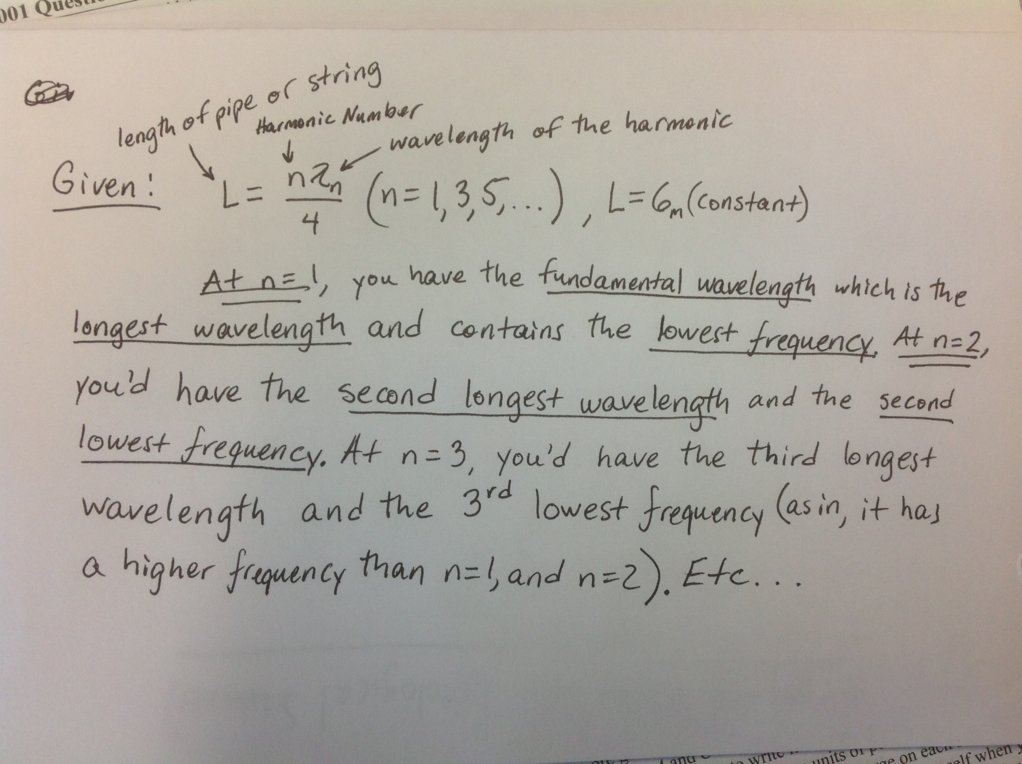 001 Questi
length of pipe or string
Harmonic Number
wavelength of the harmonic
Given: L = nλn/4 (n = 1, 3, 5, ...), L = 6m (constant)
At n = 1, you have the fundamental wavelength which is the
longest wavelength and contains the lowest frequency. At n=2,
you'd have the second longest wavelength and the second
lowest frequency. At n = 3, you'd have the third longest
wavelength and the 3rd lowest frequency (as in, it has
a higher frequency than n=1, and n=2). Etc...
and
write
units of
on each
self when